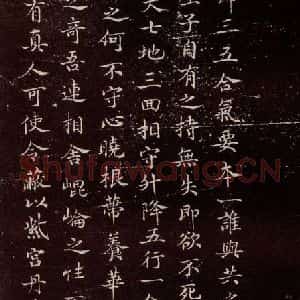 三五合氣要本一誰與共
子自有之持無失即欲不死
天七地三回相守升降五行一合
之何不守心曉根蒂養華
之奇吾連相舍崐崘之性
有真人可使令蔽以紫宮丹
Shufawang.CN